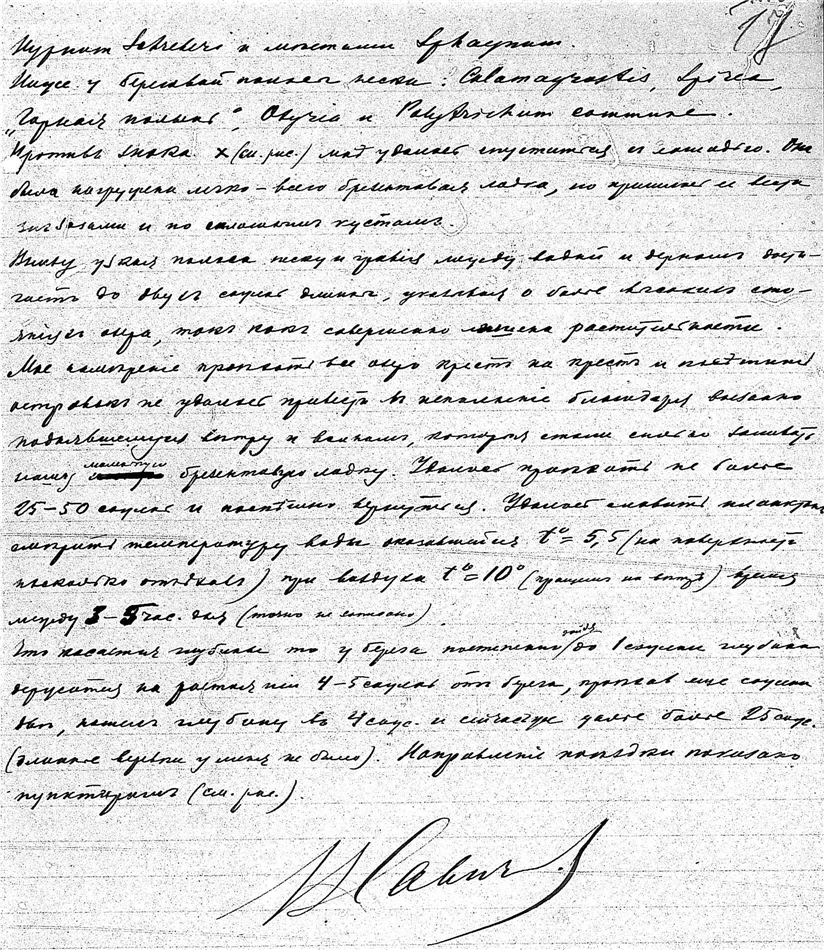 17
Hypnum Schreberi и местами Sphagnum.
Ниже у береговой полосы пески: Calamagrostis, Spirea,
„Горная полынь", Oxyria и Polytrichum commune.
Против знака × (см. рис.) мы удалось спуститься с лошадью. Она
была нагружена легко – всего брезентовая лодка, но пришлось ее вести
зигзагами и по сплошным кустам.
Внизу узкая полоса песку и гравия между водой и дерном дости-
гает до двух сажен длины, указывая о более высоком сто-
янии озера, так как совершенно лишена растительности.
Мое намерение проплыть все озеро крест на крест и
островок не удалось привести в исполнение благодаря внезапно
поднявшемуся ветру и волнам, которыя стали сильно заливать
нашу маленькую брезентовую лодку. Удалось проплыть не более
25–50 сажен и поспешно вернуться. Удалось словить планктон,
смерить температуру воды оказавшейся t° = 5,5 (на поверхности
несколько отъехав) при воздуха t° = 10° (пращем на ветру) время
между 3–5 час. дня (точно не
Что касается глубины то у берега постепенно дойдя/до 1 сажени глубина
держится на расстоянии 4–5 сажен от берега, проехав еще сажени
две, нашел глубину в 4 саж. и сейчас же далее более 25 саж.
(длиннее веревки у меня не было). Направление поездки показано
пунктиром (см. рис.).
В Савич